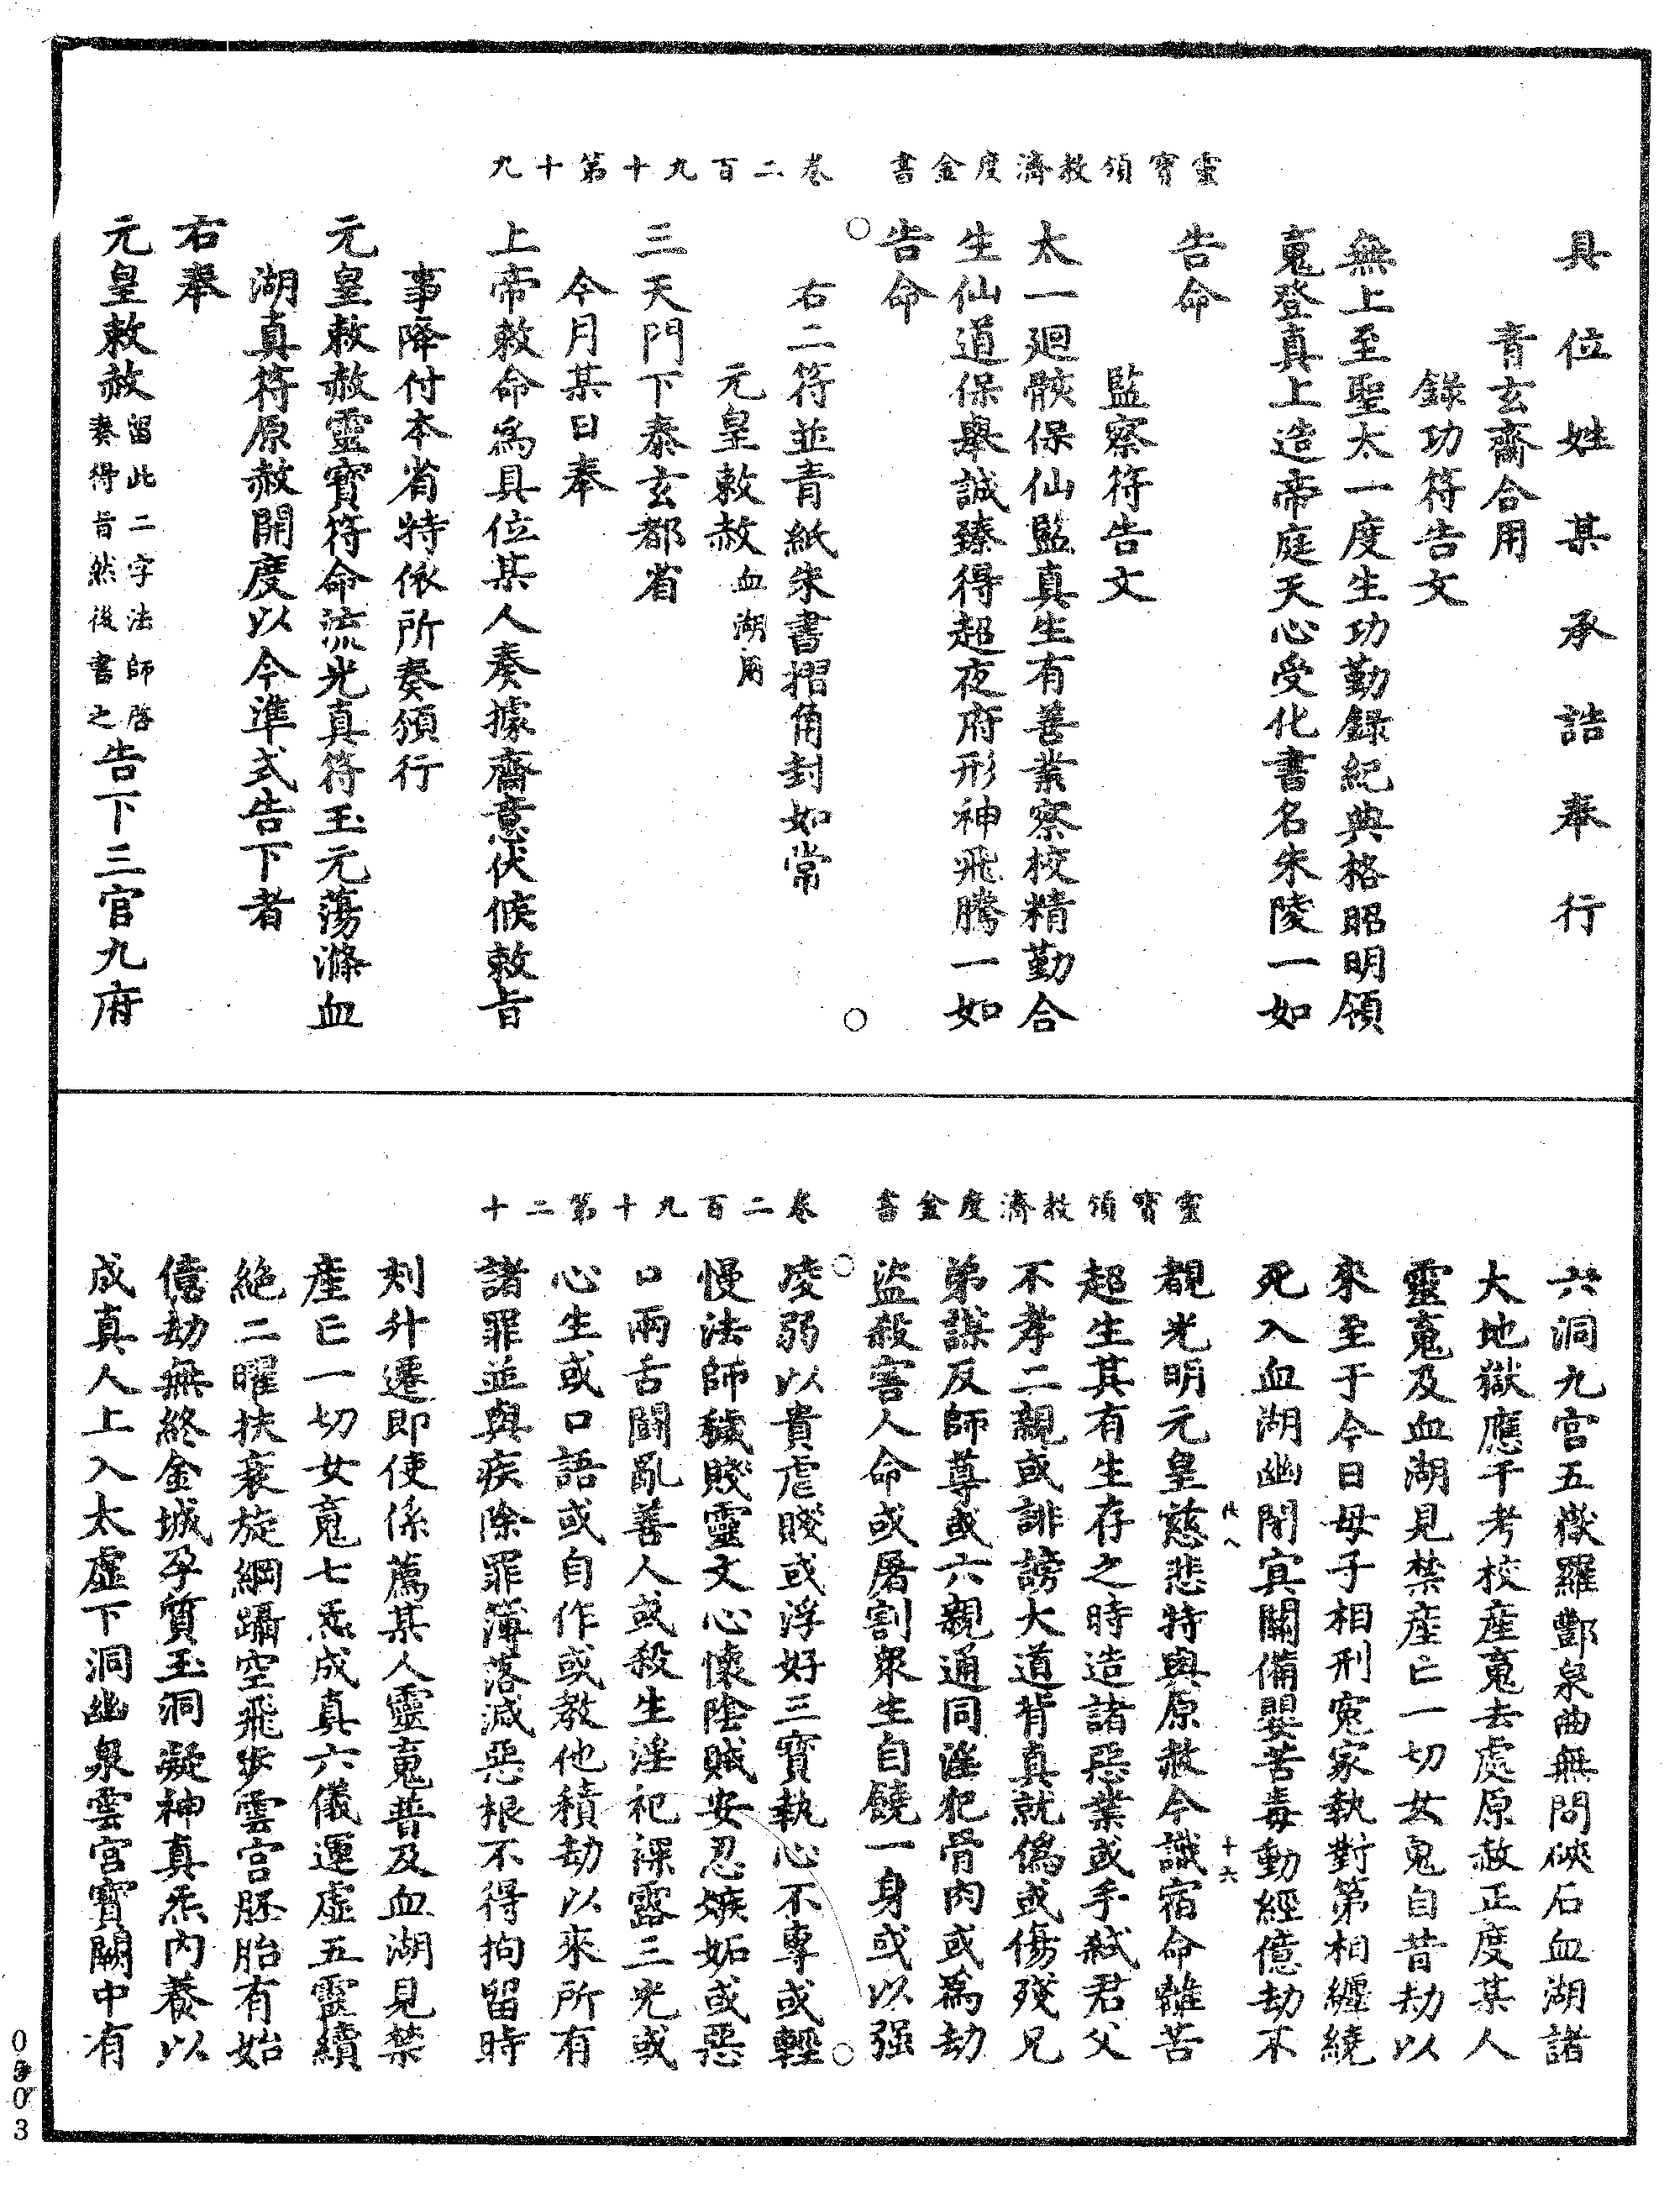 靈寶領教濟度金書　卷二百九十第十九
具位姓某承誥奉行
青玄齋合用
錄功符告文
無上至聖太一度生功勤錄紀典格昭明領
䰟登真上造帝庭天心受化書名朱陵一如
告命
監察符告文
太一廻骸保仙監真生有善業察校精勤合
生仙道保舉誠臻得超夜府形神飛騰一如
告命
右二符並青紙朱書摺角封如常
元皇敕赦血湖用
三天門下泰玄都省
今月某日奉
上帝敕命爲具位某人奏據齋意伏候敕旨
事降付本省特依所奏頒行
元皇敕赦靈寶符命流光真符玉元蕩滌血
湖真符原赦開度以今準式告下者
右奉
元皇敕赦留此二字法師啓奏得旨然後書之告下三官九府
靈寶領教濟度金書　卷二百九十第二十
六洞九宮五嶽羅酆泉曲無間硤石血湖諸
大地獄應干考校産䰟去處原赦正度某人
靈䰟及血湖見禁産亡一切女鬼自昔劫以
來至于今日母子相刑寃家執對第相纏繞
死入血湖幽閉㝠關備嬰苦毒動經億劫不
覩光明元皇慈悲特與原赦今識宿命離苦
超生其有生存之時造諸惡業或手弒君父
不孝二親或誹謗大道背真就僞或傷殘兄
弟謀反師尊或六親通同淫犯骨肉或爲劫
盜殺害人命或屠割衆生自饒一身或以强
凌弱以貴虐賤或浮好三寶執心不專或輕
慢法師穢賤靈文心懷陰賊安忍嫉妬或惡
口兩舌鬭亂善人或殺生淫祀裸露三光或
心生或口語或自作或教他積劫以來所有
諸罪並與疾除罪簿落滅惡根不得拘留時
刻升遷即使係薦某人靈䰟普及血湖見禁
産亡一切女䰟七炁成真六儀運虛五靈續
絶二曜扶衰旋綱躡空飛步雲宮胚胎有始
億劫無終金城孕質玉洞凝神真炁内養以
成真人上入太虛下洞幽泉雲宮寶闕中有
十六
0903